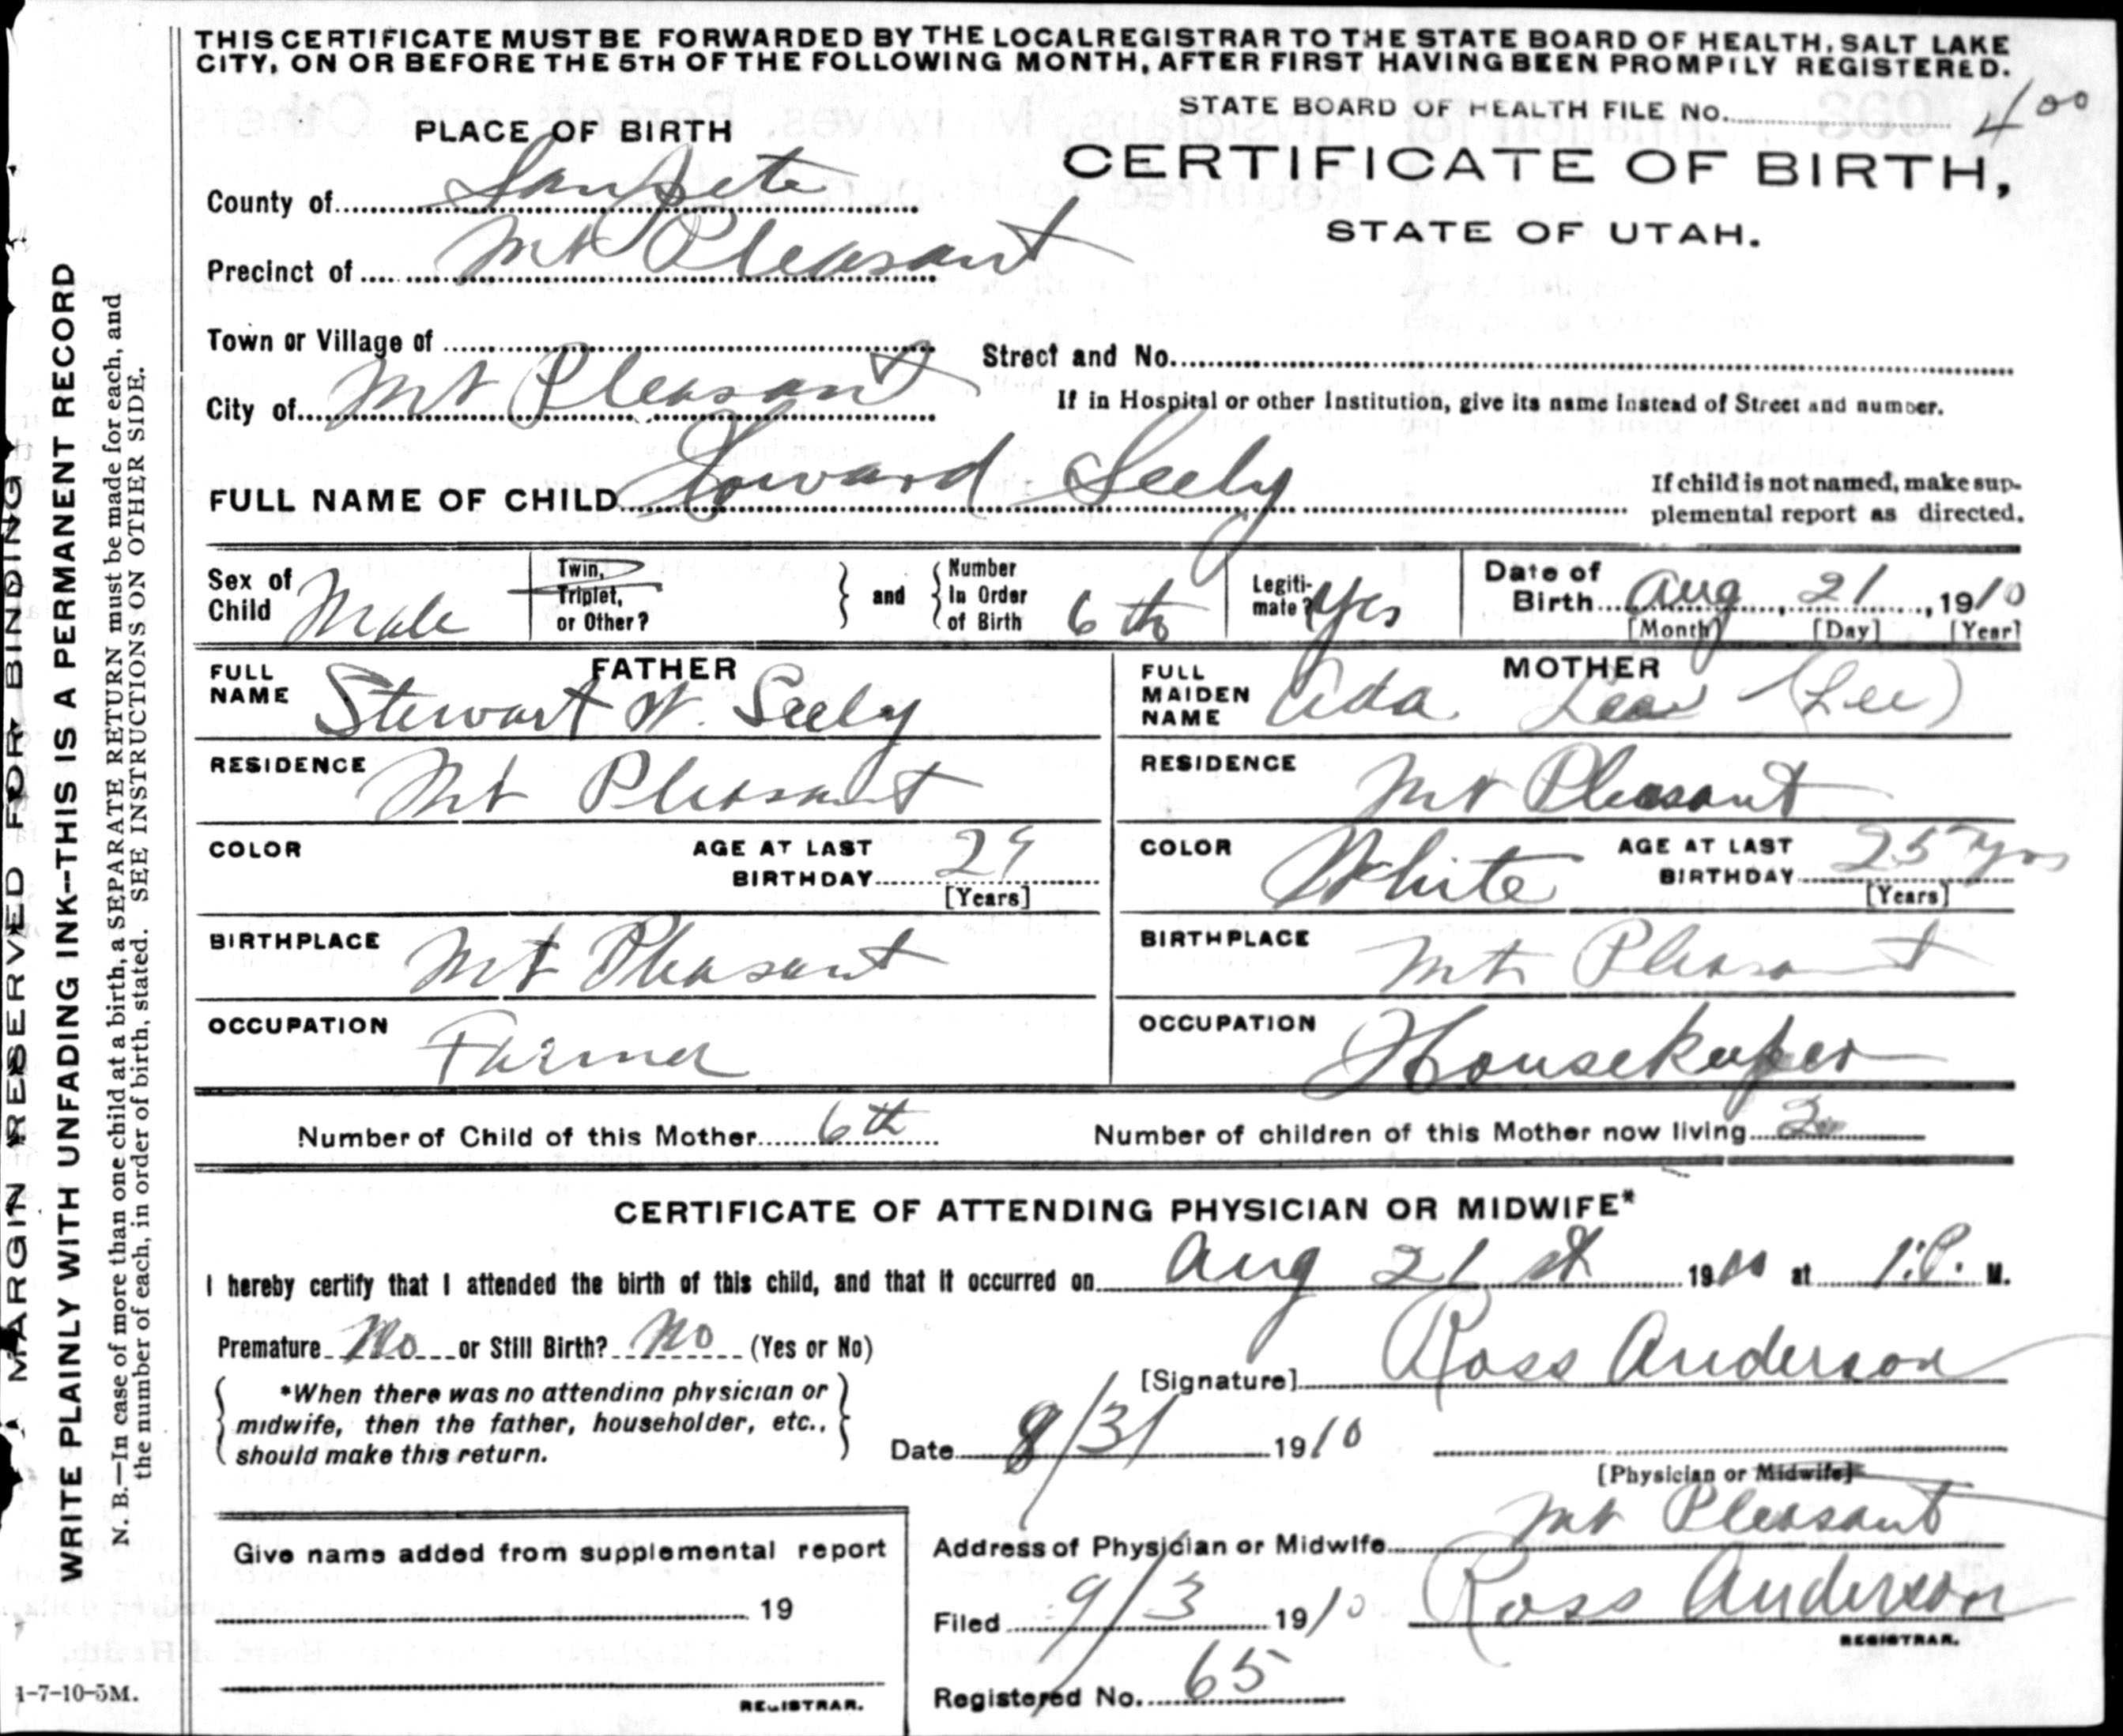 THIS CERTIFICATE MUST BE FORWARDED BY THE LOCAL REGISTRAR TO THE STATE BOARD OF HEALTH, SALT LAKE
CITY, ON OR BEFORE THE 5TH OF THE FOLLOWING MONTH, AFTER FIRST HAVING BEEN PROMPILY REGISTERED.
STATE BOARD OF HEALTH FILE No. 400
PLACE OF BIRTH
CERTIFICATE OF BIRTH,
STATE OF UTAH.
County of Sanpete
Precinct of Mt Pleasant
Town or Village of
Street and No.
City of Mt Pleasant
If in Hospital or other Institution, give its name instead of Street and number.
FULL NAME OF CHILD Seely
If child is not named, make sup-
plemental report as directed.
Sex of Child Male
Twin, Triplet, or Other?
and
Number In Order of Birth 6th
Legiti-mate? Yes
Date of Birth Aug 21, 1910
[Month] [Day] [Year]
FATHER
FULL NAME Stewart W. Seely
MOTHER
FULL MAIDEN NAME Ada (Lee)
RESIDENCE Mt Pleasant
RESIDENCE Mt Pleasant
COLOR
AGE AT LAST BIRTHDAY 29
[Years]
COLOR White
AGE AT LAST BIRTHDAY 25 yrs
[Years]
BIRTHPLACE Mt Pleasant
BIRTHPLACE Mt Pleasant
OCCUPATION Farmer
OCCUPATION Housekeeper
Number of Child of this Mother 6th
Number of children of this Mother now living 2
CERTIFICATE OF ATTENDING PHYSICIAN OR MIDWIFE*
I hereby certify that I attended the birth of this child, and that it occurred on Aug 21 st 1910 at 1 P. M.
Premature No or Still Birth? No (Yes or No)
[Signature] Ross Anderson
*When there was no attending physician or
midwife, then the father, householder, etc.,
should make this return.
Date 8/31 1910
[Physician or Midwife]
Address of Physician or Midwife Mt Pleasant
Give name added from supplemental report
19
REGISTRAR.
Filed 9/3 1910 Ross Anderson
REGISTRAR.
Registered No. 65
1-7-10-5M.
MARGIN RESERVED FOR BINDING
WRITE PLAINLY WITH UNFADING INK--THIS IS A PERMANENT RECORD
N. B.—In case of more than one child at a birth, a SEPARATE RETURN must be made for each, and
the number of each, in order of birth, stated. SEE INSTRUCTIONS ON OTHER SIDE.